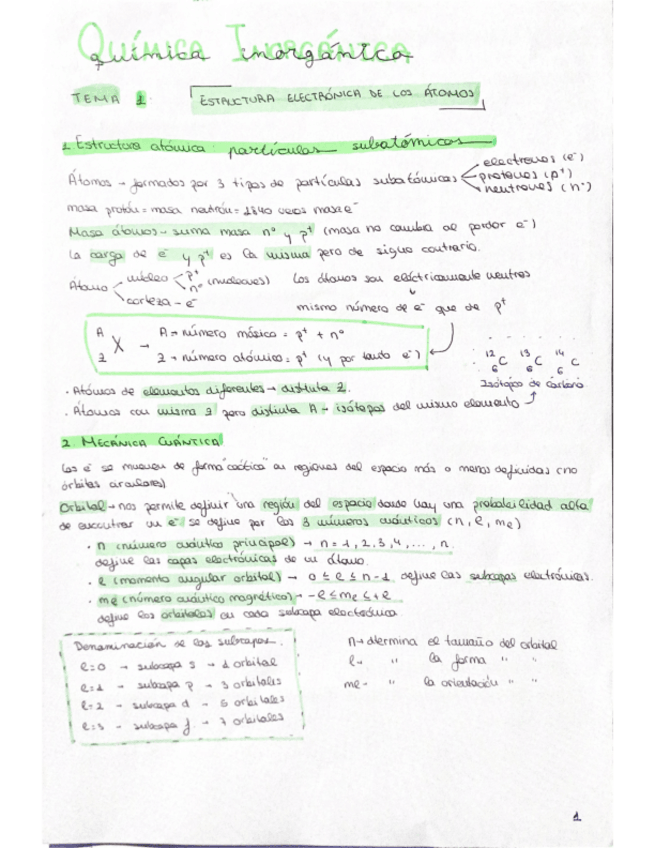 Química Inorgánica
química inorgánica
TEMA 1.
ESTRUCTURA ELECTRÓNICA DE LOS ÁTOMOS
1. Estructura atómica: partículas subatómicas
Átomos → formados por 3 tipos de partículas subatómicas
electrones (e⁻)
protones (p⁺)
neutrones (n°)
masa protón = masa neutrón = 1840 veces masa e⁻
Masa átomos → suma masa n° y p⁺ (masa no cambia al perder e⁻)
La carga de e⁻ y p⁺ es la misma pero de signo contrario.
Átomo
núcleo
p⁺
n° (nucleones)
corteza - e⁻
Los átomos son eléctricamente neutros
mismo número de e⁻ que de p⁺
A
X →
Z
A → número másico = p⁺ + n°
Z → número atómico = p⁺ (y por tanto e⁻)
¹²₆C ¹³₆C ¹⁴₆C
Isótopos de carbono
· Átomos de elementos diferentes → distinta Z.
· Átomos con misma Z pero distinta A → isótopos del mismo elemento
2. MECÁNICA CUÁNTICA
Los e⁻ se mueven de forma "caótica" en regiones del espacio más o menos definidas (no
órbitas circulares)
Orbital → nos permite definir una región del espacio donde hay una probabilidad alta
de encontrar un e⁻ se define por los 3 números cuánticos (n, l, ml)
· n (número cuántico principal) → n = 1, 2, 3, 4, ..., n.
define las capas electrónicas de un átomo.
· l (momento angular orbital) → 0 ≤ l ≤ n-1 define las subcapas electrónicas.
· ml (número cuántico magnético) → -l ≤ ml ≤ +l
define los orbitales en cada subcapa electrónica.
Denominación de las subcapas.
l=0 → subcapa s → 1 orbital
l=1 → subcapa p → 3 orbitales
l=2 → subcapa d → 5 orbitales
l=3 → subcapa f → 7 orbitales
n → determina el tamaño del orbital
l → " la forma " "
ml → " la orientación " "
1